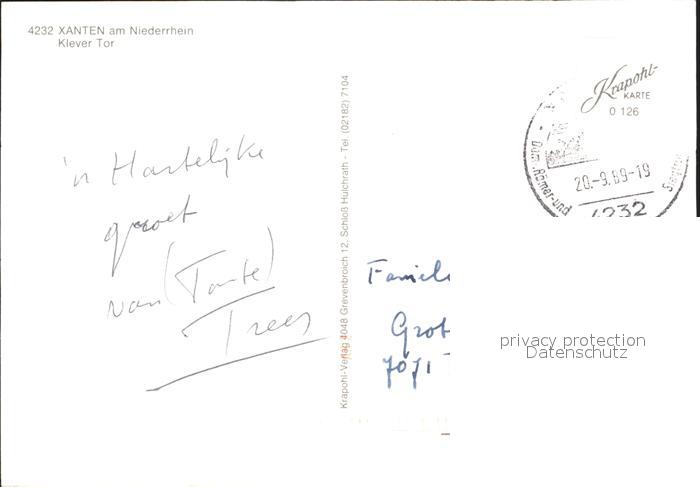 4232 XANTEN am Niederrhein
Klever Tor
'n Hartelijke
groet
van (Tante)
Trees
Krapohl-Verlag 4048 Grevenbroich 12, Schloß Hülchrath - Tel. (02182) 7104
Krapohl-
KARTE
0 126
Dom, Römer- und
20.-9.89-19
4232
Famil
Grot
7071
privacy protection
Datenschutz